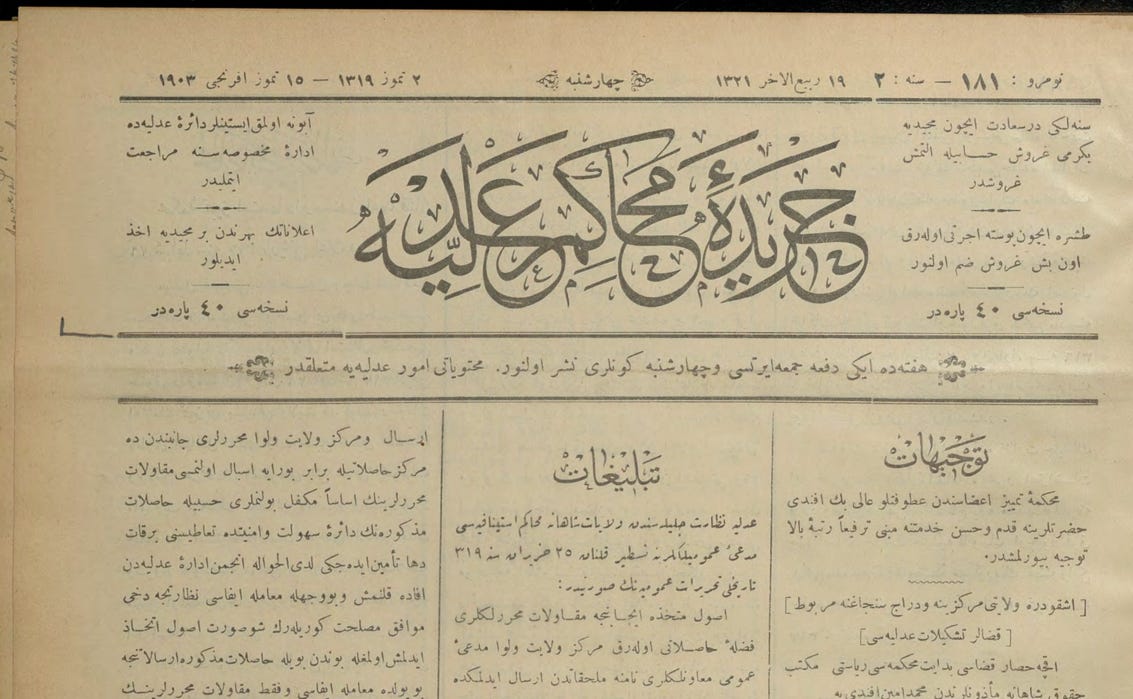 نومرو : ١٨١ — سنه : ٢
١٩ ربيع الاخر ١٣٢١
چهارشنبه
٢ تموز ١٣١٩ — ١٥ تموز افرنجى ١٩٠٣
سنه‌لكى درسعادت ايچون مجيديه
يكرمى غروش حسابيله التمش
غروشدر
طشره ايچون پوسته اجرتى اوله‌رق
اون بش غروش ضم اولنور
نسخه‌سى ٤٠ پاره‌در
جريدۀ محاكم عدليه
آبونه اولمق ايستينلر دائرۀ عدليه‌ده
ادارۀ مخصوصه‌سنه مراجعت
ايتمليدر
اعلاناتك بهرندن بر مجيديه اخذ
ايديلور
نسخه‌سى ٤٠ پاره‌در
هفته‌ده ايكى دفعه جمعه‌ايرتسى وچهارشنبه كونلرى نشر اولنور. محتوياتى امور عدليه‌يه متعلقدر
توجيهات
محكمۀ تمييز اعضاسندن عطوفتلو عالى بك افندى
حضرتلرينه قدم وحسن خدمتنه مبنى ترفيعاً رتبۀ بالا
توجيه بيورلمشدر.
[ اشقودره ولايتى مركزينه ودراج سنجاغنه مربوط ]
[ قضالر تشكيلات عدليه‌سى ]
اقچه‌حصار قضاسى بدايت محكمه‌سى رياستى مكتب
حقوق شاهانه مأذونلرندن محمدامين افندى‌يه
تبليغات
عدليه نظارت جليله‌سندن ولايات شاهانه محاكم استينافيه‌سى
مدعئ عموميلكلرينه تسطير قلنان ٢٥ حزيران سنه ٣١٩
تاريخلى تحريرات عموميه‌نك صورتيدر :
اصول متخذه ايجابنجه مقاولات محررلكلرى
فضلۀ حاصلاتى اوله‌رق مركز ولايت ولوا مدعئ
عمومى معاونلكلرى نامنه ملحقاتدن ارسال ايدلمكده
ارسال ومركز ولايت ولوا محررلرى جانبندن ده
مركز حاصلاتيله برابر بورايه اسبال اولنمسى مقاولات
محررلرينك اساساً مكفل بولنملرى حسبيله حاصلات
مذكوره‌نك دائرۀ سهولت وامنيتده تعاطيسنى برقات
دها تأمين ايده‌جكى لدى الحواله انجمن ادارۀ عدليه‌دن
افاده قلنمش وبووجهله معامله ايفاسى نظارتجه دخى
موافق مصلحت كوريله‌رك شوصورت اصول اتخاذ
ايدلمش اولمغله بوندن بويله حاصلات مذكوره ارسالاتنجه
بو يولده معامله ايفاسى وفقط مقاولات محررلرينك